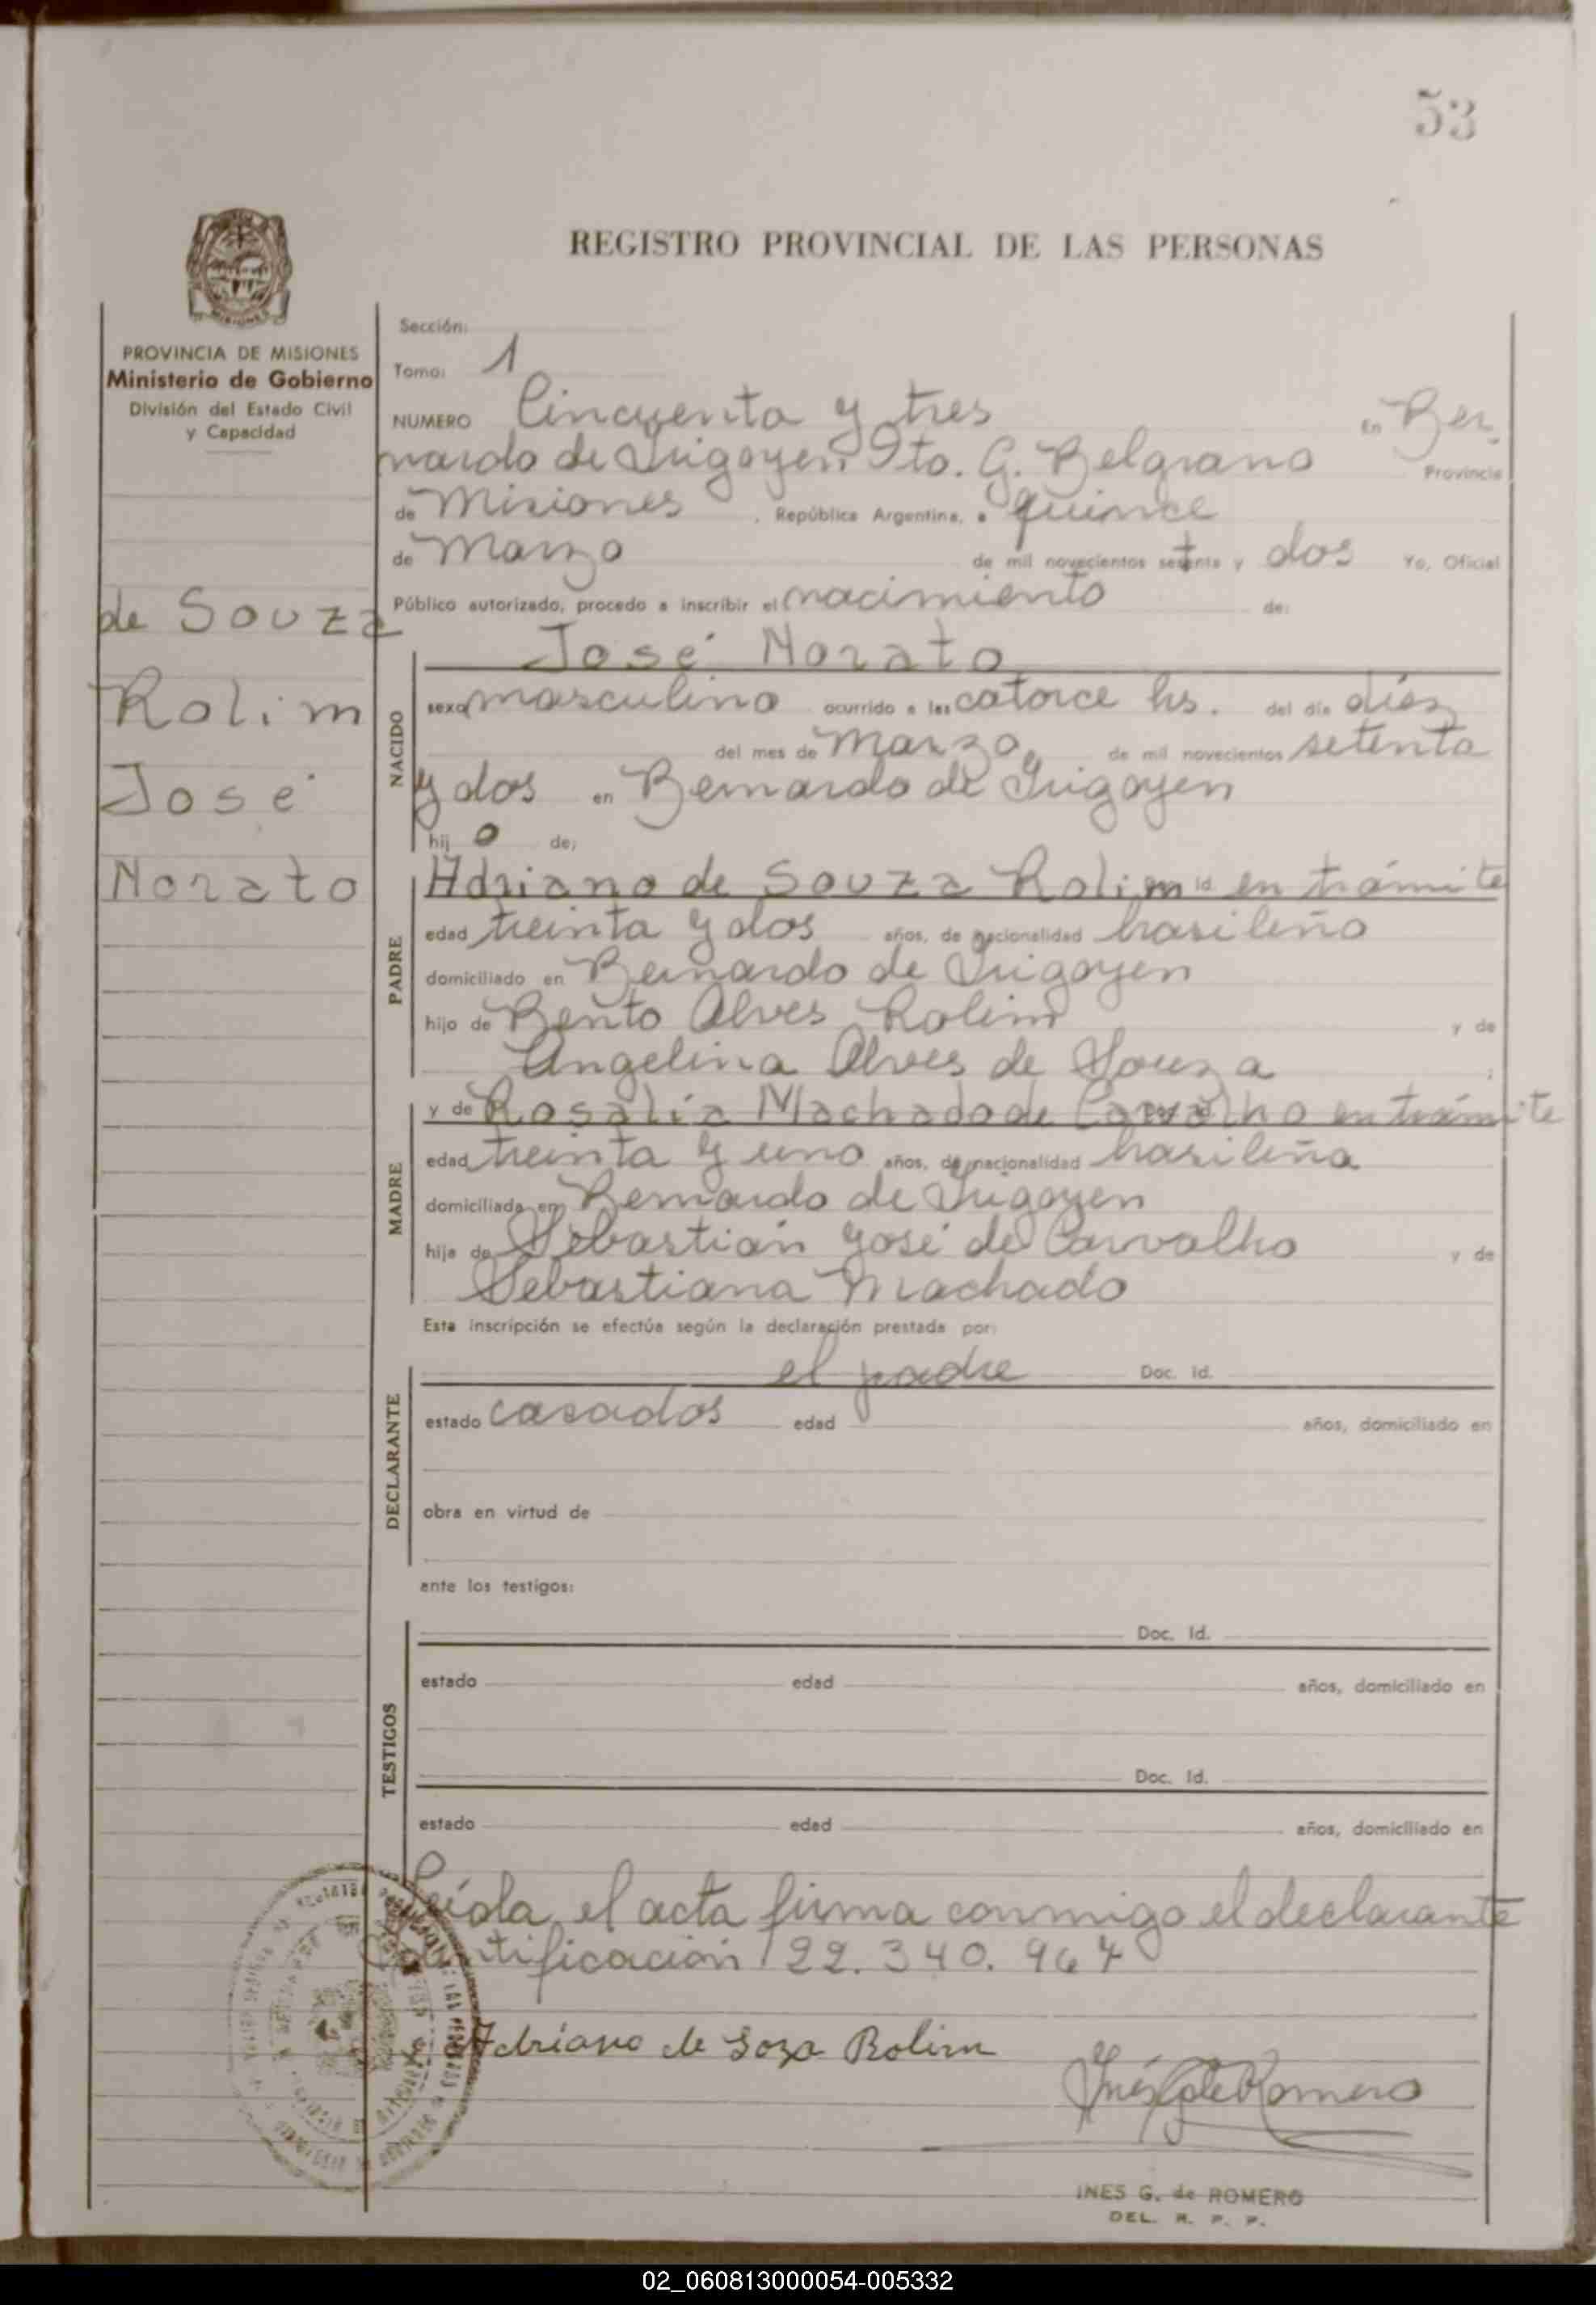 53
REGISTRO PROVINCIAL DE LAS PERSONAS
MISIONES
PROVINCIA DE MISIONES
Ministerio de Gobierno
División del Estado Civil
y Capacidad
de Souza
Rolim
José
Norato
Sección:
Tomo: 1
NUMERO Cincuenta y tres En Ber
nardo de Irigoyen Dto. G. Belgrano Provincia
de Misiones, República Argentina, a quince
de Marzo de mil novecientos setenta y dos Yo, Oficial
Público autorizado, procedo a inscribir el nacimiento de:
José Norato
NACIDO
sexo masculino ocurrido a las catorce hs. del día diéz
del mes de Marzo, de mil novecientos setenta
y dos en Bernardo de Irigoyen
hij o de;
PADRE
Adriano de Souza Rolim id en trámite
edad treinta y dos años, de nacionalidad brasileño
domiciliado en Bernardo de Irigoyen
hijo de Bento Alves Rolim y de
Angelina Alves de Souza ;
MADRE
y de Rosalía Machado de Carvalho en trámite
edad treinta y uno años, de nacionalidad brasileña
domiciliada en Bernardo de Irigoyen
hija de Sebastián José de Carvalho y de
Sebastiana Machado
Esta inscripción se efectúa según la declaración prestada por:
DECLARANTE
el padre Doc. Id.
estado casados edad años, domiciliado en
obra en virtud de
ante los testigos:
TESTIGOS
Doc. Id.
estado edad años, domiciliado en
Doc. Id.
estado edad años, domiciliado en
Leída el acta firma conmigo el declarante
22.340.967
Adriano de Soza Rolim
Inés G de Romero
INES G. de ROMERO
DEL. R. P. P.
02_060813000054-005332